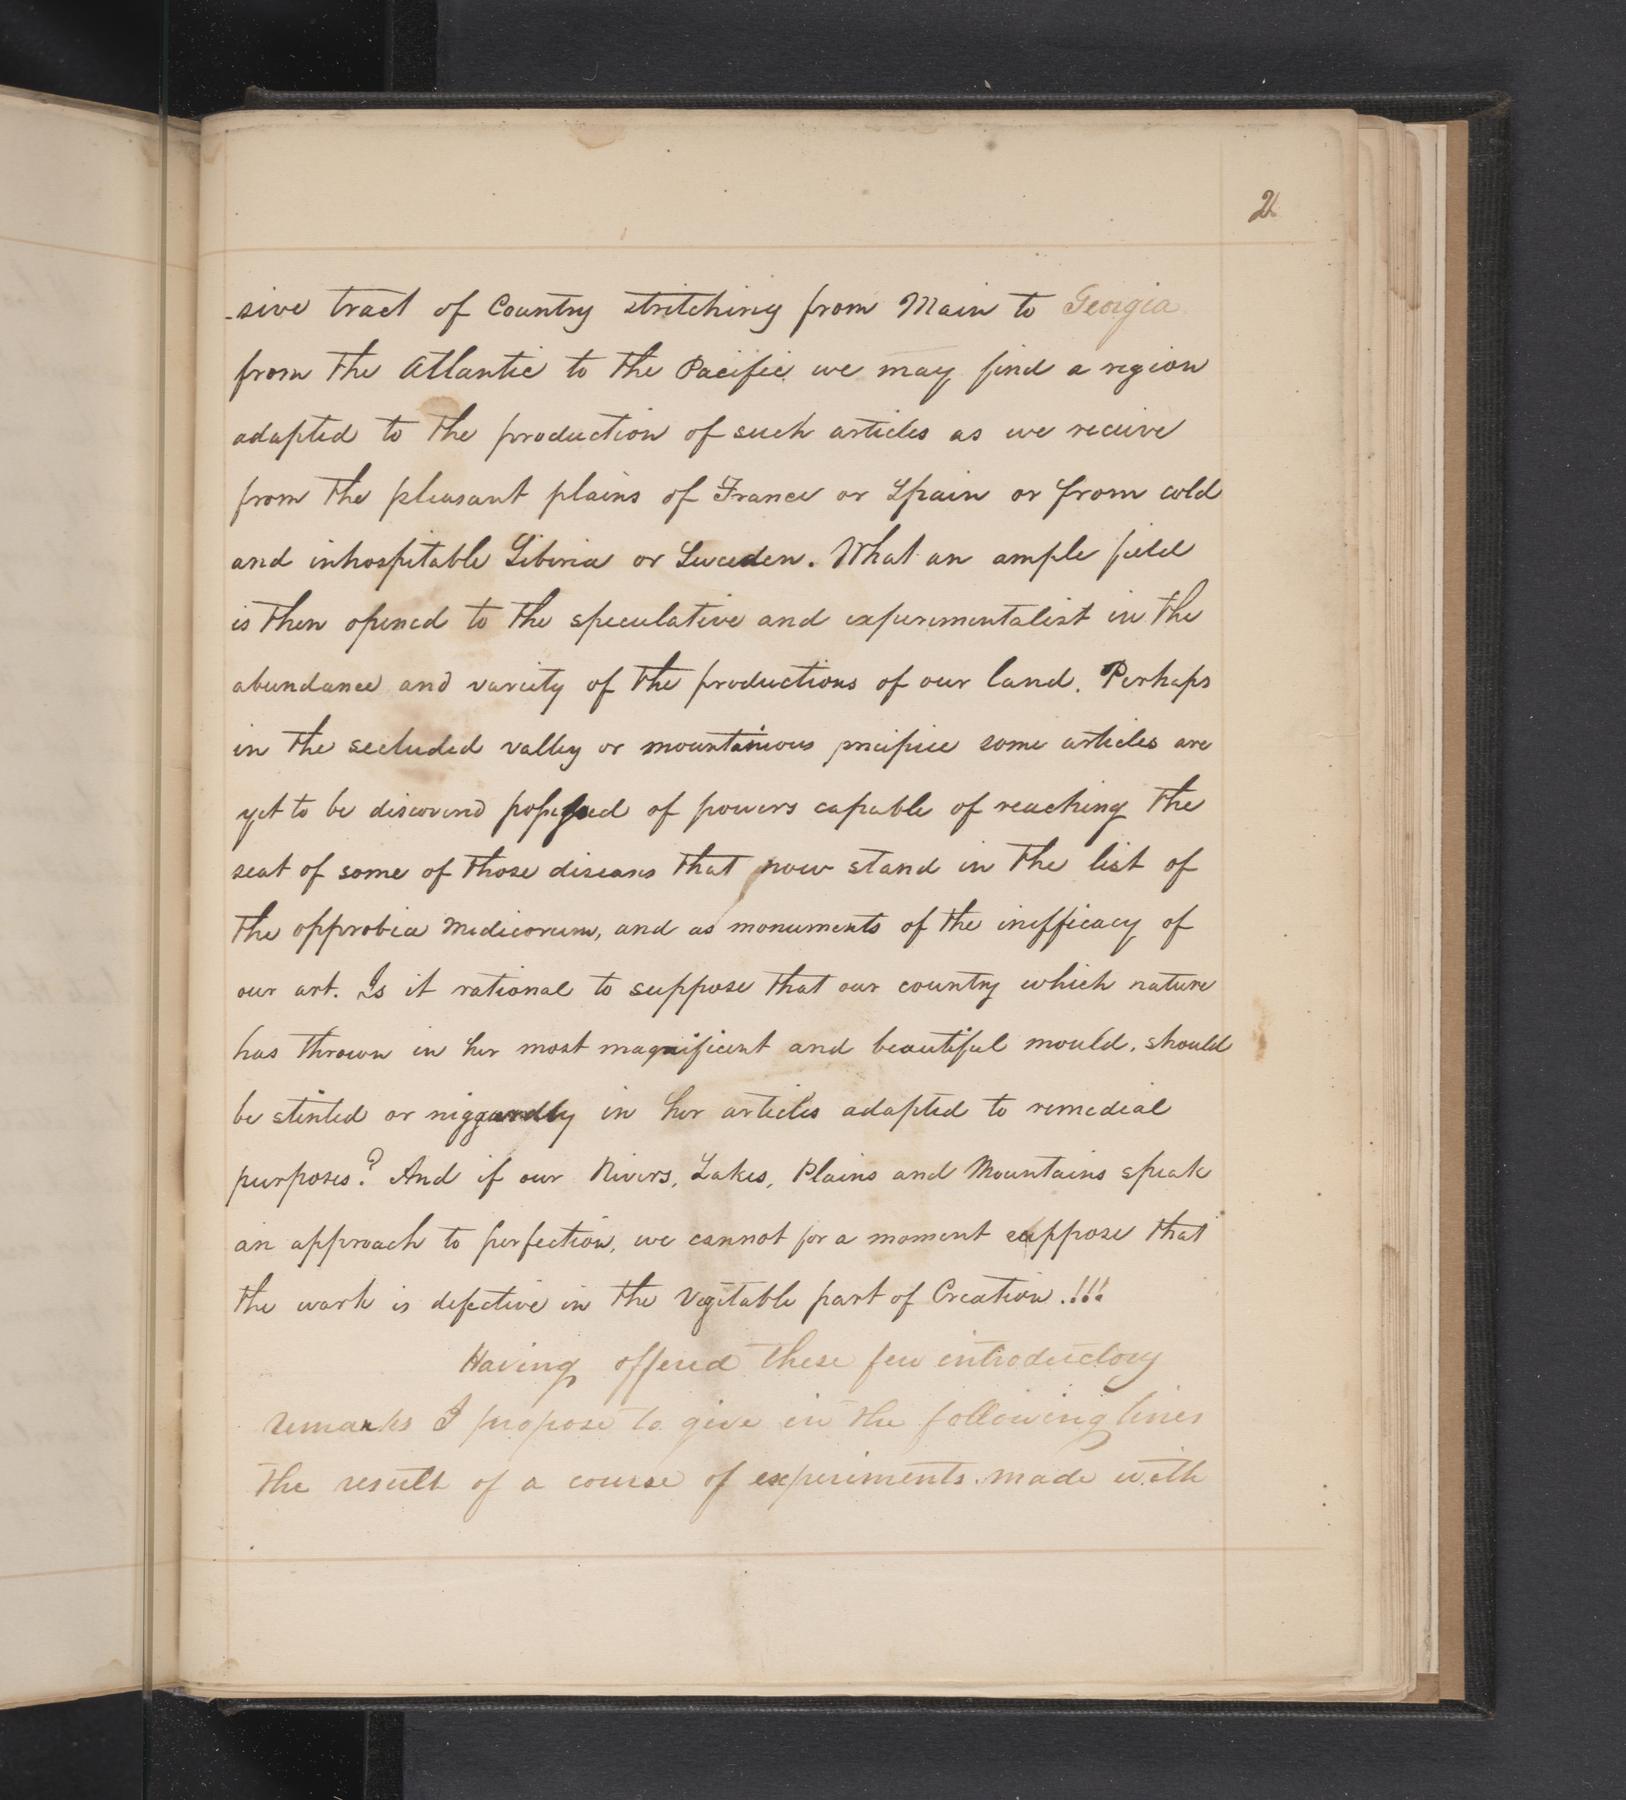 2
-sive tract of Country stritching from Main to Georgia
from the Atlantic to the Pacific we may find a region
adapted to the production of such articles as we recieve
from the pleasant plains of France or Spain or from cold
and inhospitable Siberia or Sweeden. What an ample field
is then opened to the speculative and experimentalist in the
abundance and variety of the productions of our land. Perhaps
in the secluded valley or mountainious pricipice some articles are
yet to be discovered possessed of powers capable of reaching the
seat of some of those diseases that now stand in the list of
the opprobia Medicorum, and as monuments of the inefficacy of
our art. Is it rational to suppose that our country which nature
has thrown in her most magnificent and beautiful mould, should
be stinted or niggardly in her articles adapted to remedial
purposes? And if our Rivers, Lakes, Plains and Mountains speak
an approach to perfection, we cannot for a moment suppose that
the work is defective in the Vegitable part of Creation.!!!
Having offered these few introductory
remarks I propose to give in the following lines
the result of a course of experiments made with